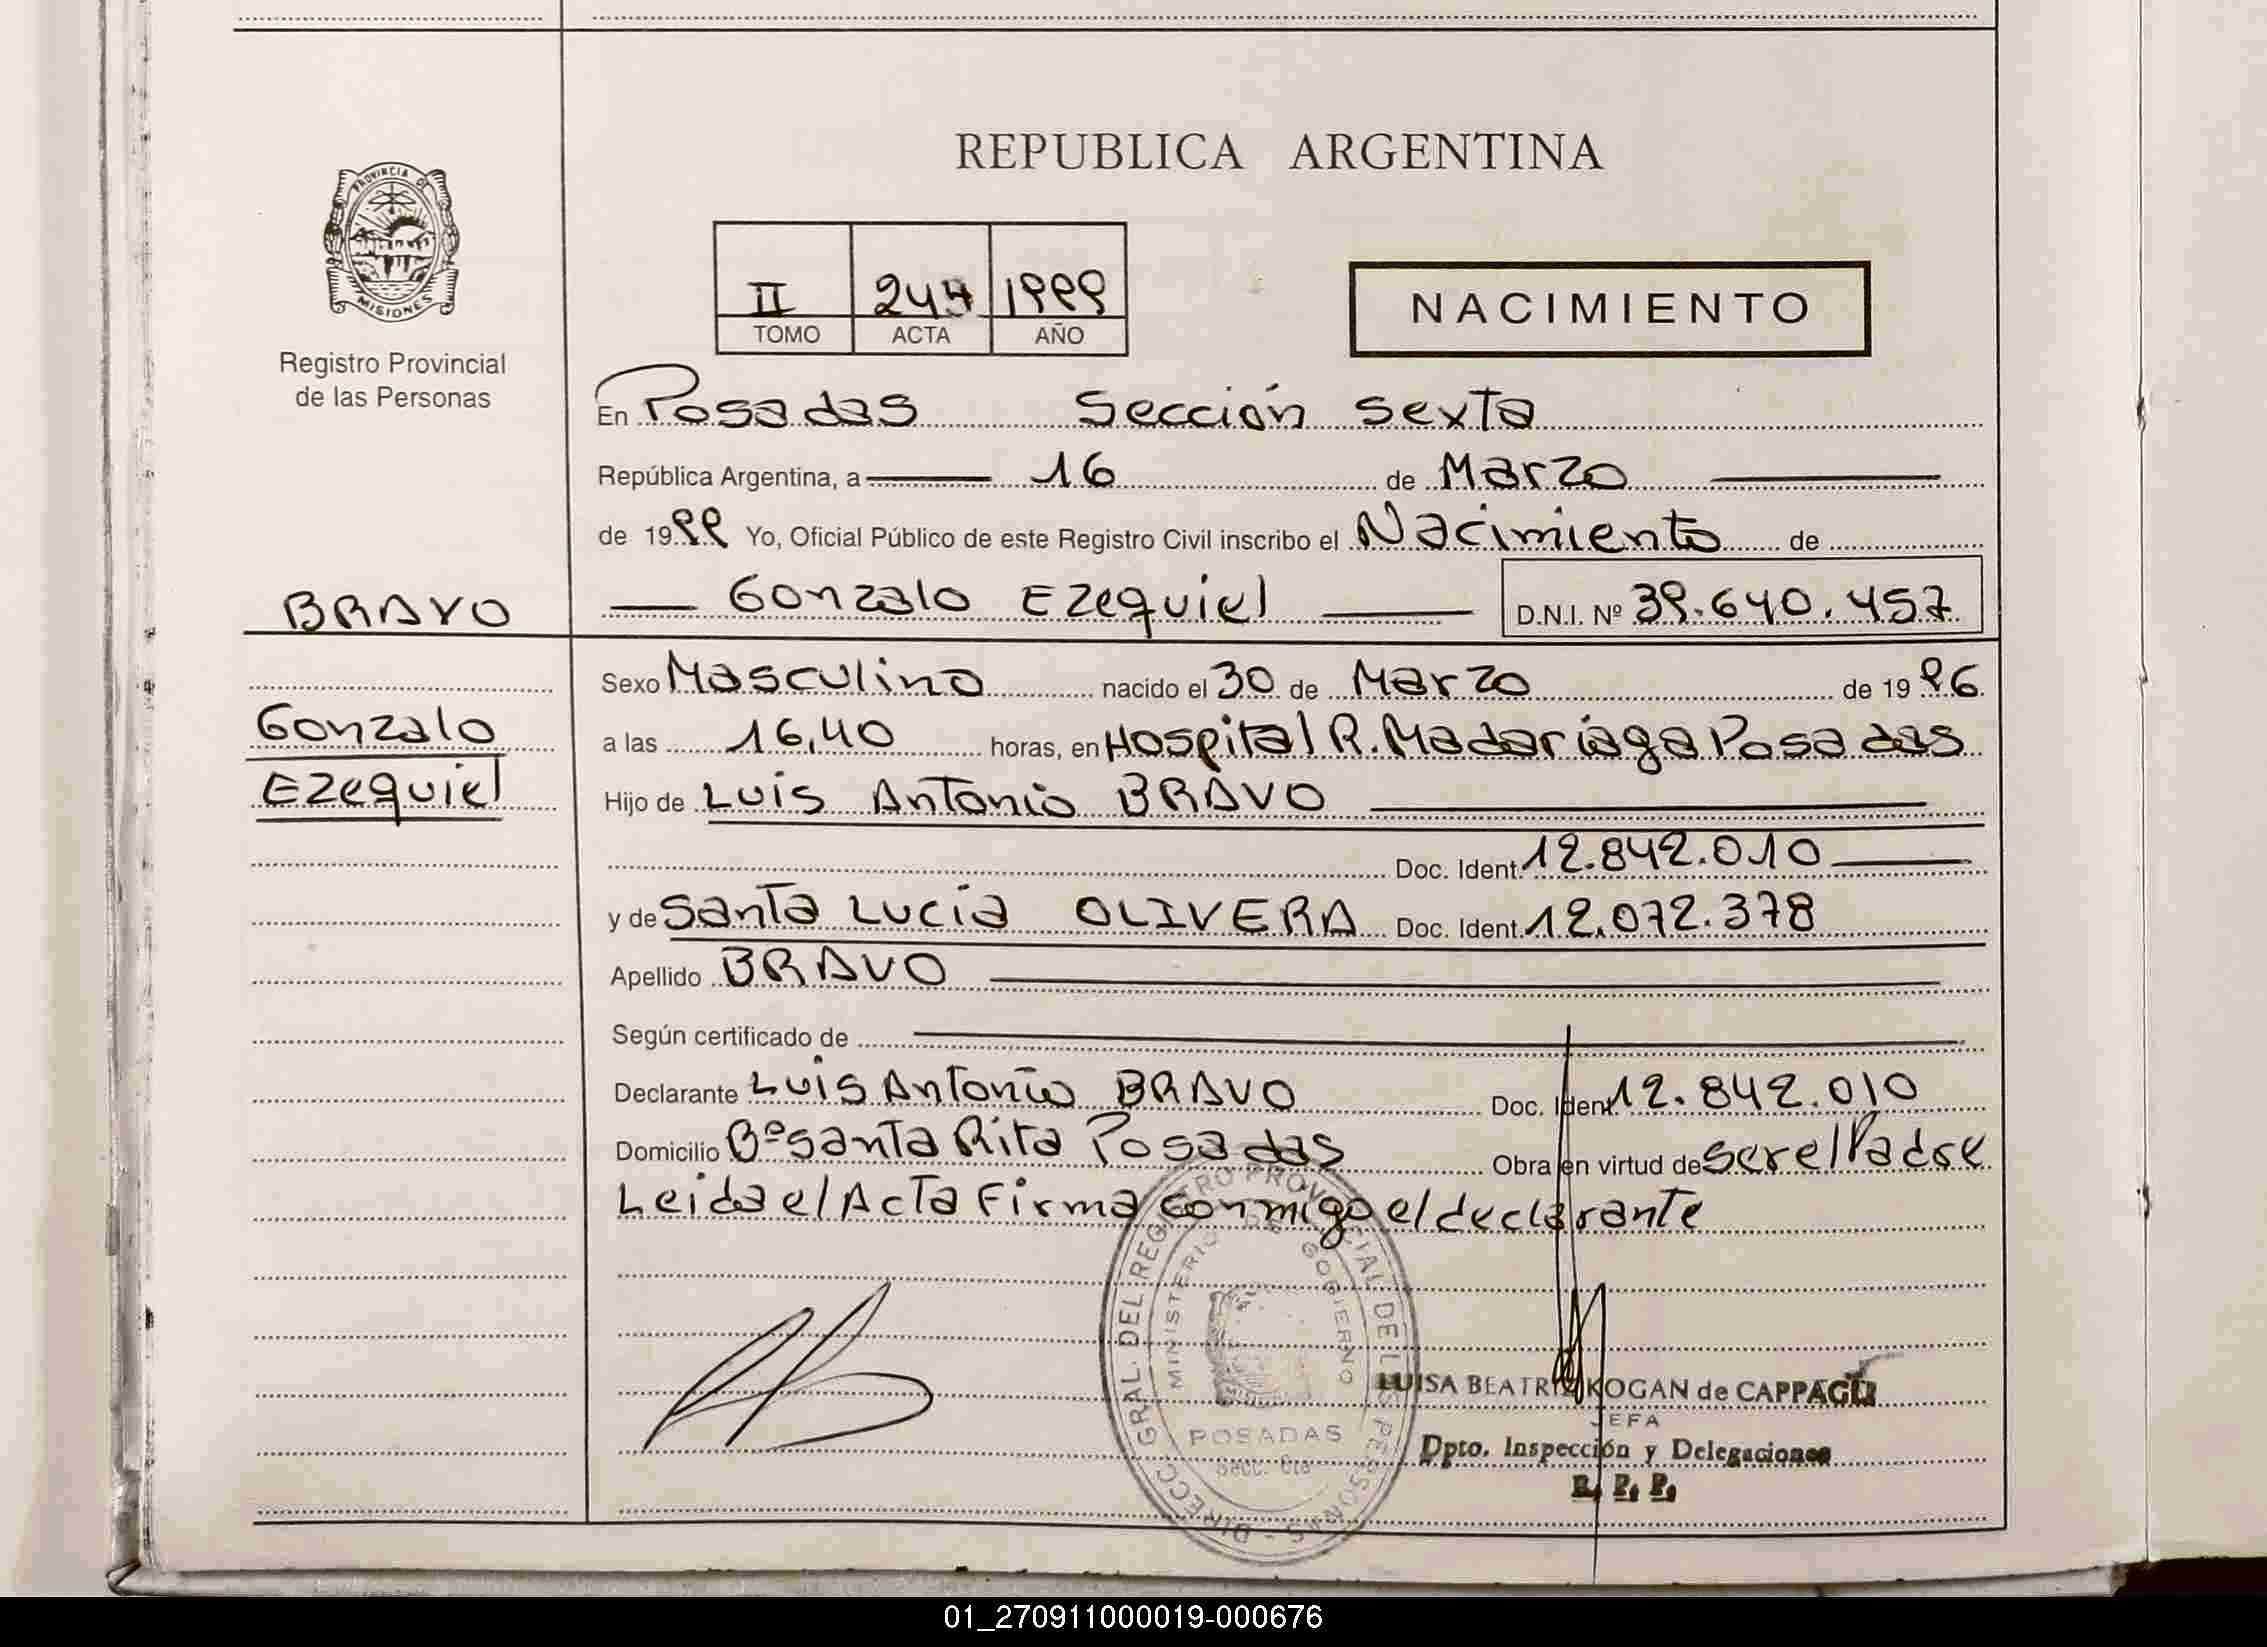 REPUBLICA ARGENTINA
PROVINCIA DE
MISIONES
Registro Provincial
de las Personas
II 244 1999
TOMO ACTA AÑO
NACIMIENTO
En Posadas Sección Sexta
República Argentina, a 16 de Marzo
de 1999 Yo, Oficial Público de este Registro Civil inscribo el Nacimiento de
BRAVO
Gonzalo Ezequiel D.N.I. Nº 39.640.457
Sexo Masculino nacido el 30 de Marzo de 1996
Gonzalo
Ezequiel
a las 16,40 horas, en Hospital R. Madariaga Posadas
Hijo de Luis Antonio BRAVO
Doc. Ident. 12.842.010
y de Santa Lucía OLIVERA Doc. Ident. 12.072.378
Apellido BRAVO
Según certificado de
Declarante Luis Antonio BRAVO Doc. Ident. 12.842.010
Domicilio Bº Santa Rita Posadas Obra en virtud de ser el Padre
Leida el Acta Firma conmigo el declarante
DIRECC. GRAL. DEL REGISTRO PROVINCIAL DE LAS PERSONAS
MINISTERIO DE GOBIERNO
POSADAS
Secc. 6ta
LUISA BEATRIZ KOGAN de CAPPAGLI
JEFA
Dpto. Inspección y Delegaciones
R. P. P.
01_270911000019-000676